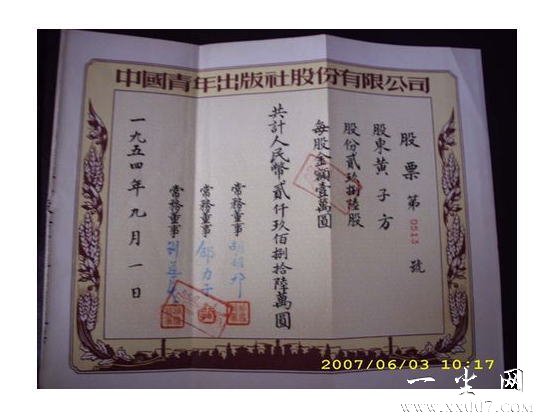 中國青年出版社股份有限公司
股票 第 0513 號
股東黃子方
股份貳玖捌陸股
每股金額壹萬圓
共計人民幣貳仟玖佰捌拾陸萬圓
常務董事 胡
常務董事 邵力子
常務董事
一九五四年九月一日
2007/06/03 10:17
一尘网
www.xx007.com